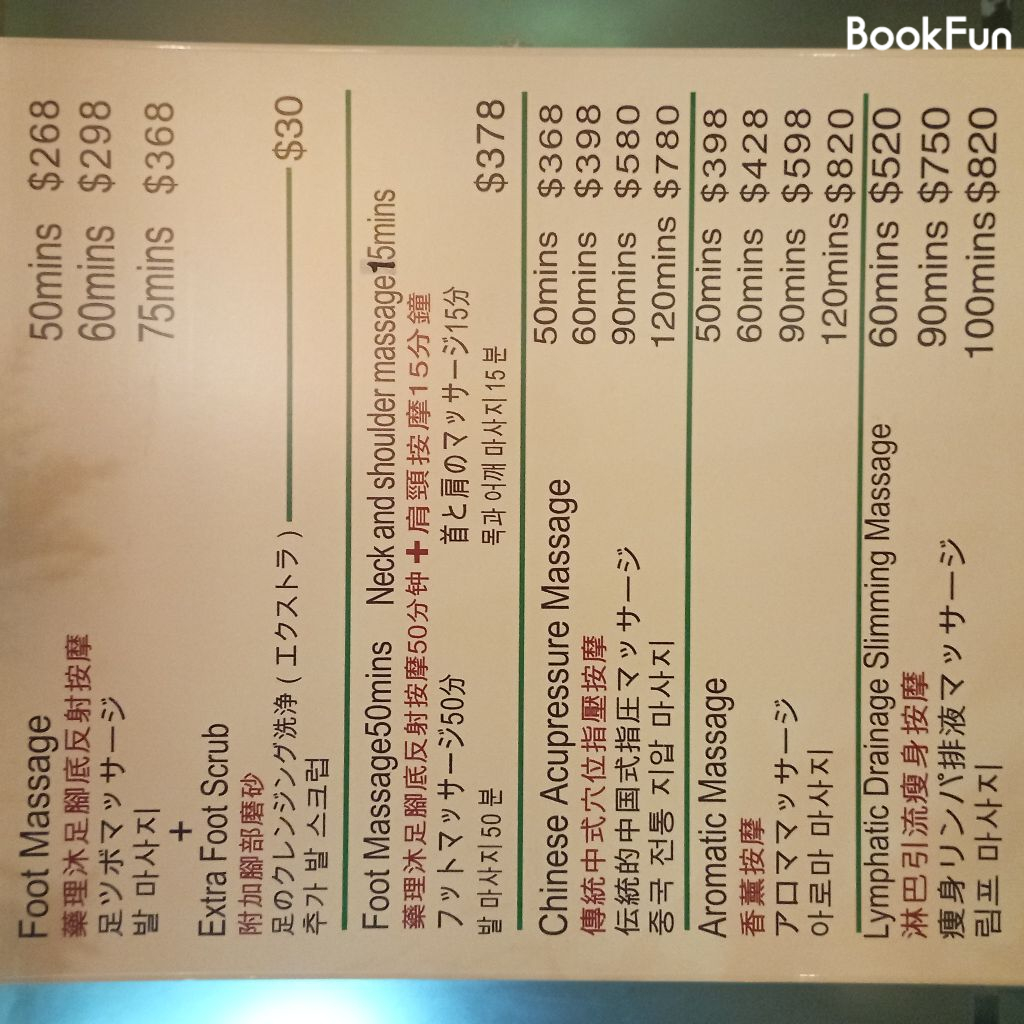 BookFun
Foot Massage 50mins $268
藥理沐足腳底反射按摩
足ツボマッサージ 60mins $298
발 마사지 75mins $368
+
Extra Foot Scrub
附加腳部磨砂
足のクレンジング洗浄(エクストラ) $30
추가 발 스크럽
Foot Massage50mins Neck and shoulder massage15mins
藥理沐足腳底反射按摩50分钟+肩頸按摩15分鐘
フットマッサージ50分 首と肩のマッサージ15分
발 마사지50분 목과 어깨 마사지15분 $378
Chinese Acupressure Massage 50mins $368
傳統中式穴位指壓按摩 60mins $398
伝統的中国式指圧マッサージ 90mins $580
중국 전통 지압 마사지 120mins $780
Aromatic Massage 50mins $398
香薰按摩 60mins $428
アロママッサージ 90mins $598
아로마 마사지 120mins $820
Lymphatic Drainage Slimming Massage 60mins $520
淋巴引流瘦身按摩
痩身リンパ排液マッサージ 90mins $750
림프 마사지 100mins $820